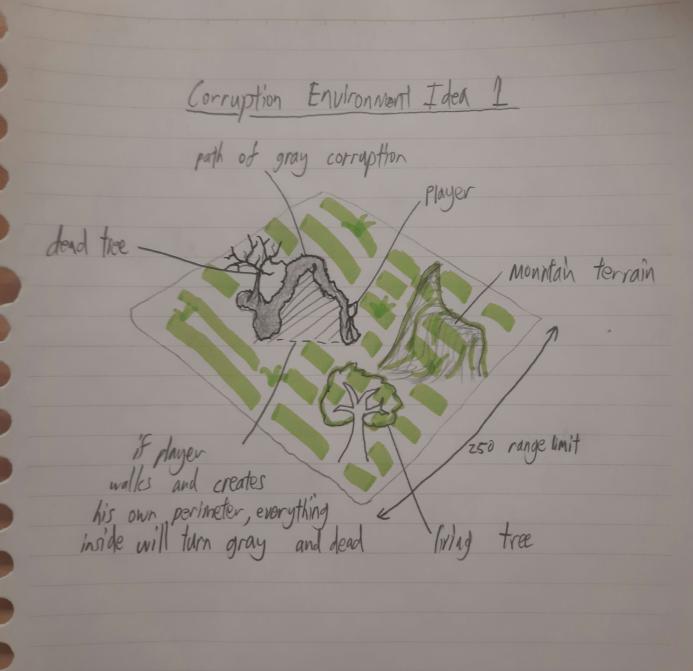 Corruption Environment Idea 1
path of gray corruption
player
dead tree
Mountain terrain
250 range limit
if player
walks and creates
his own perimeter, everything
inside will turn gray and dead
living tree